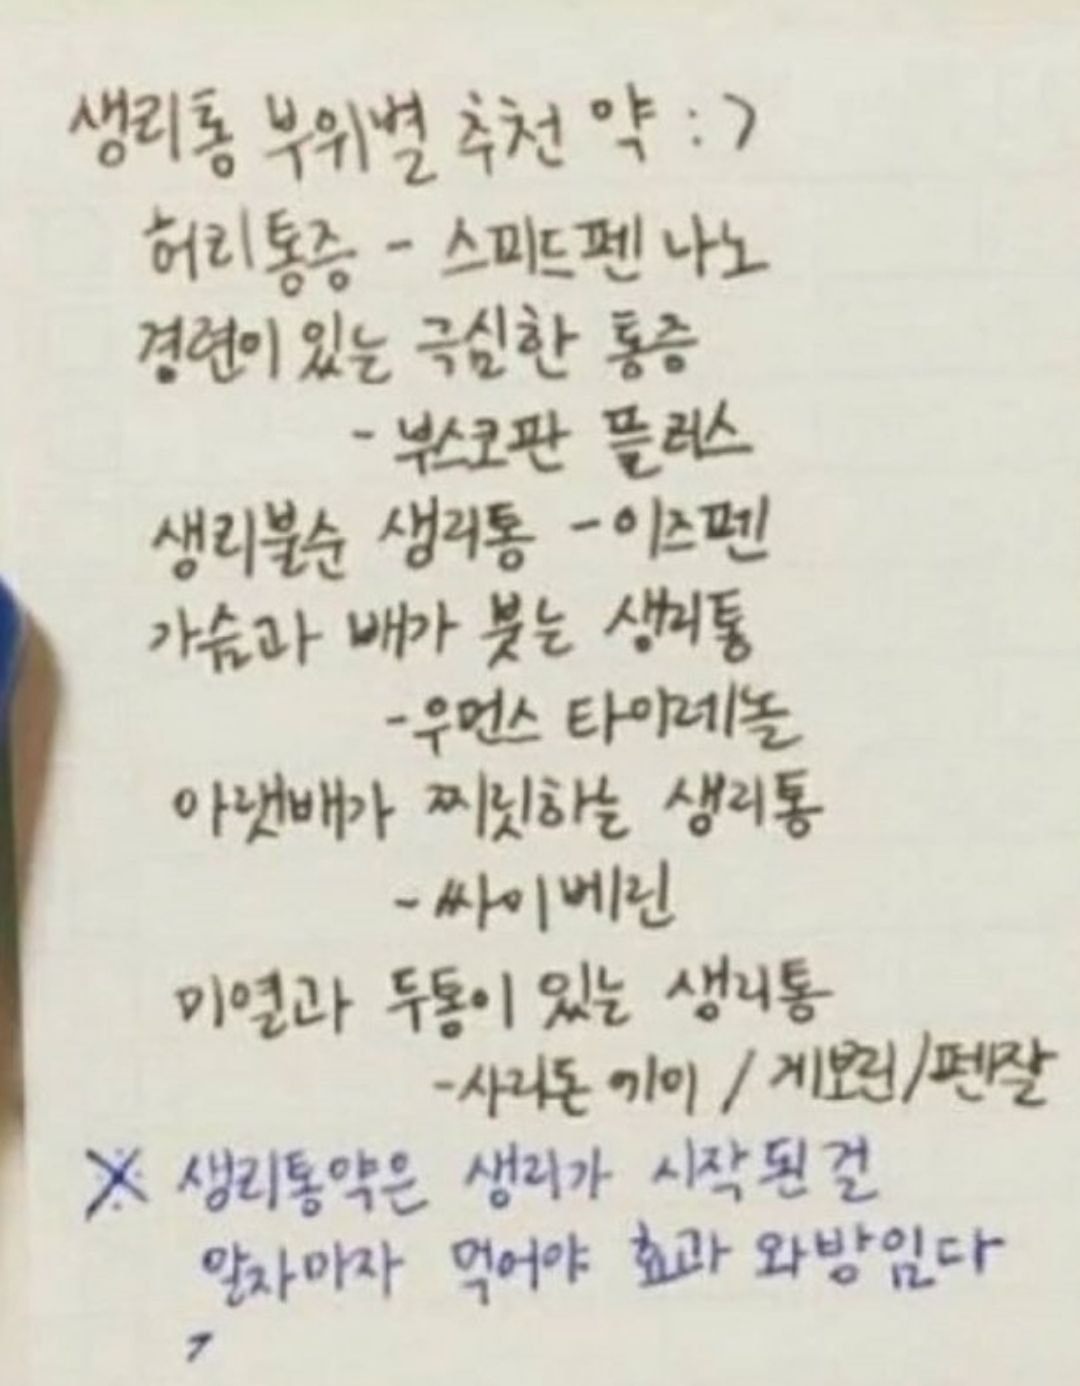 생리통 부위별 추천 약 :7
허리통증 - 스피드펜 나노
경련이 있는 극심한 통증
- 부스코판 플러스
생리불순 생리통 - 이즈펜
가슴과 배가 붓는 생리통
- 우먼스 타이레놀
아랫배가 찌릿하는 생리통
- 싸이베린
미열과 두통이 있는 생리통
- 사리돈 에이 / 게보린 / 펜잘
※ 생리통약은 생리가 시작된걸
알자마자 먹어야 효과 와방임다